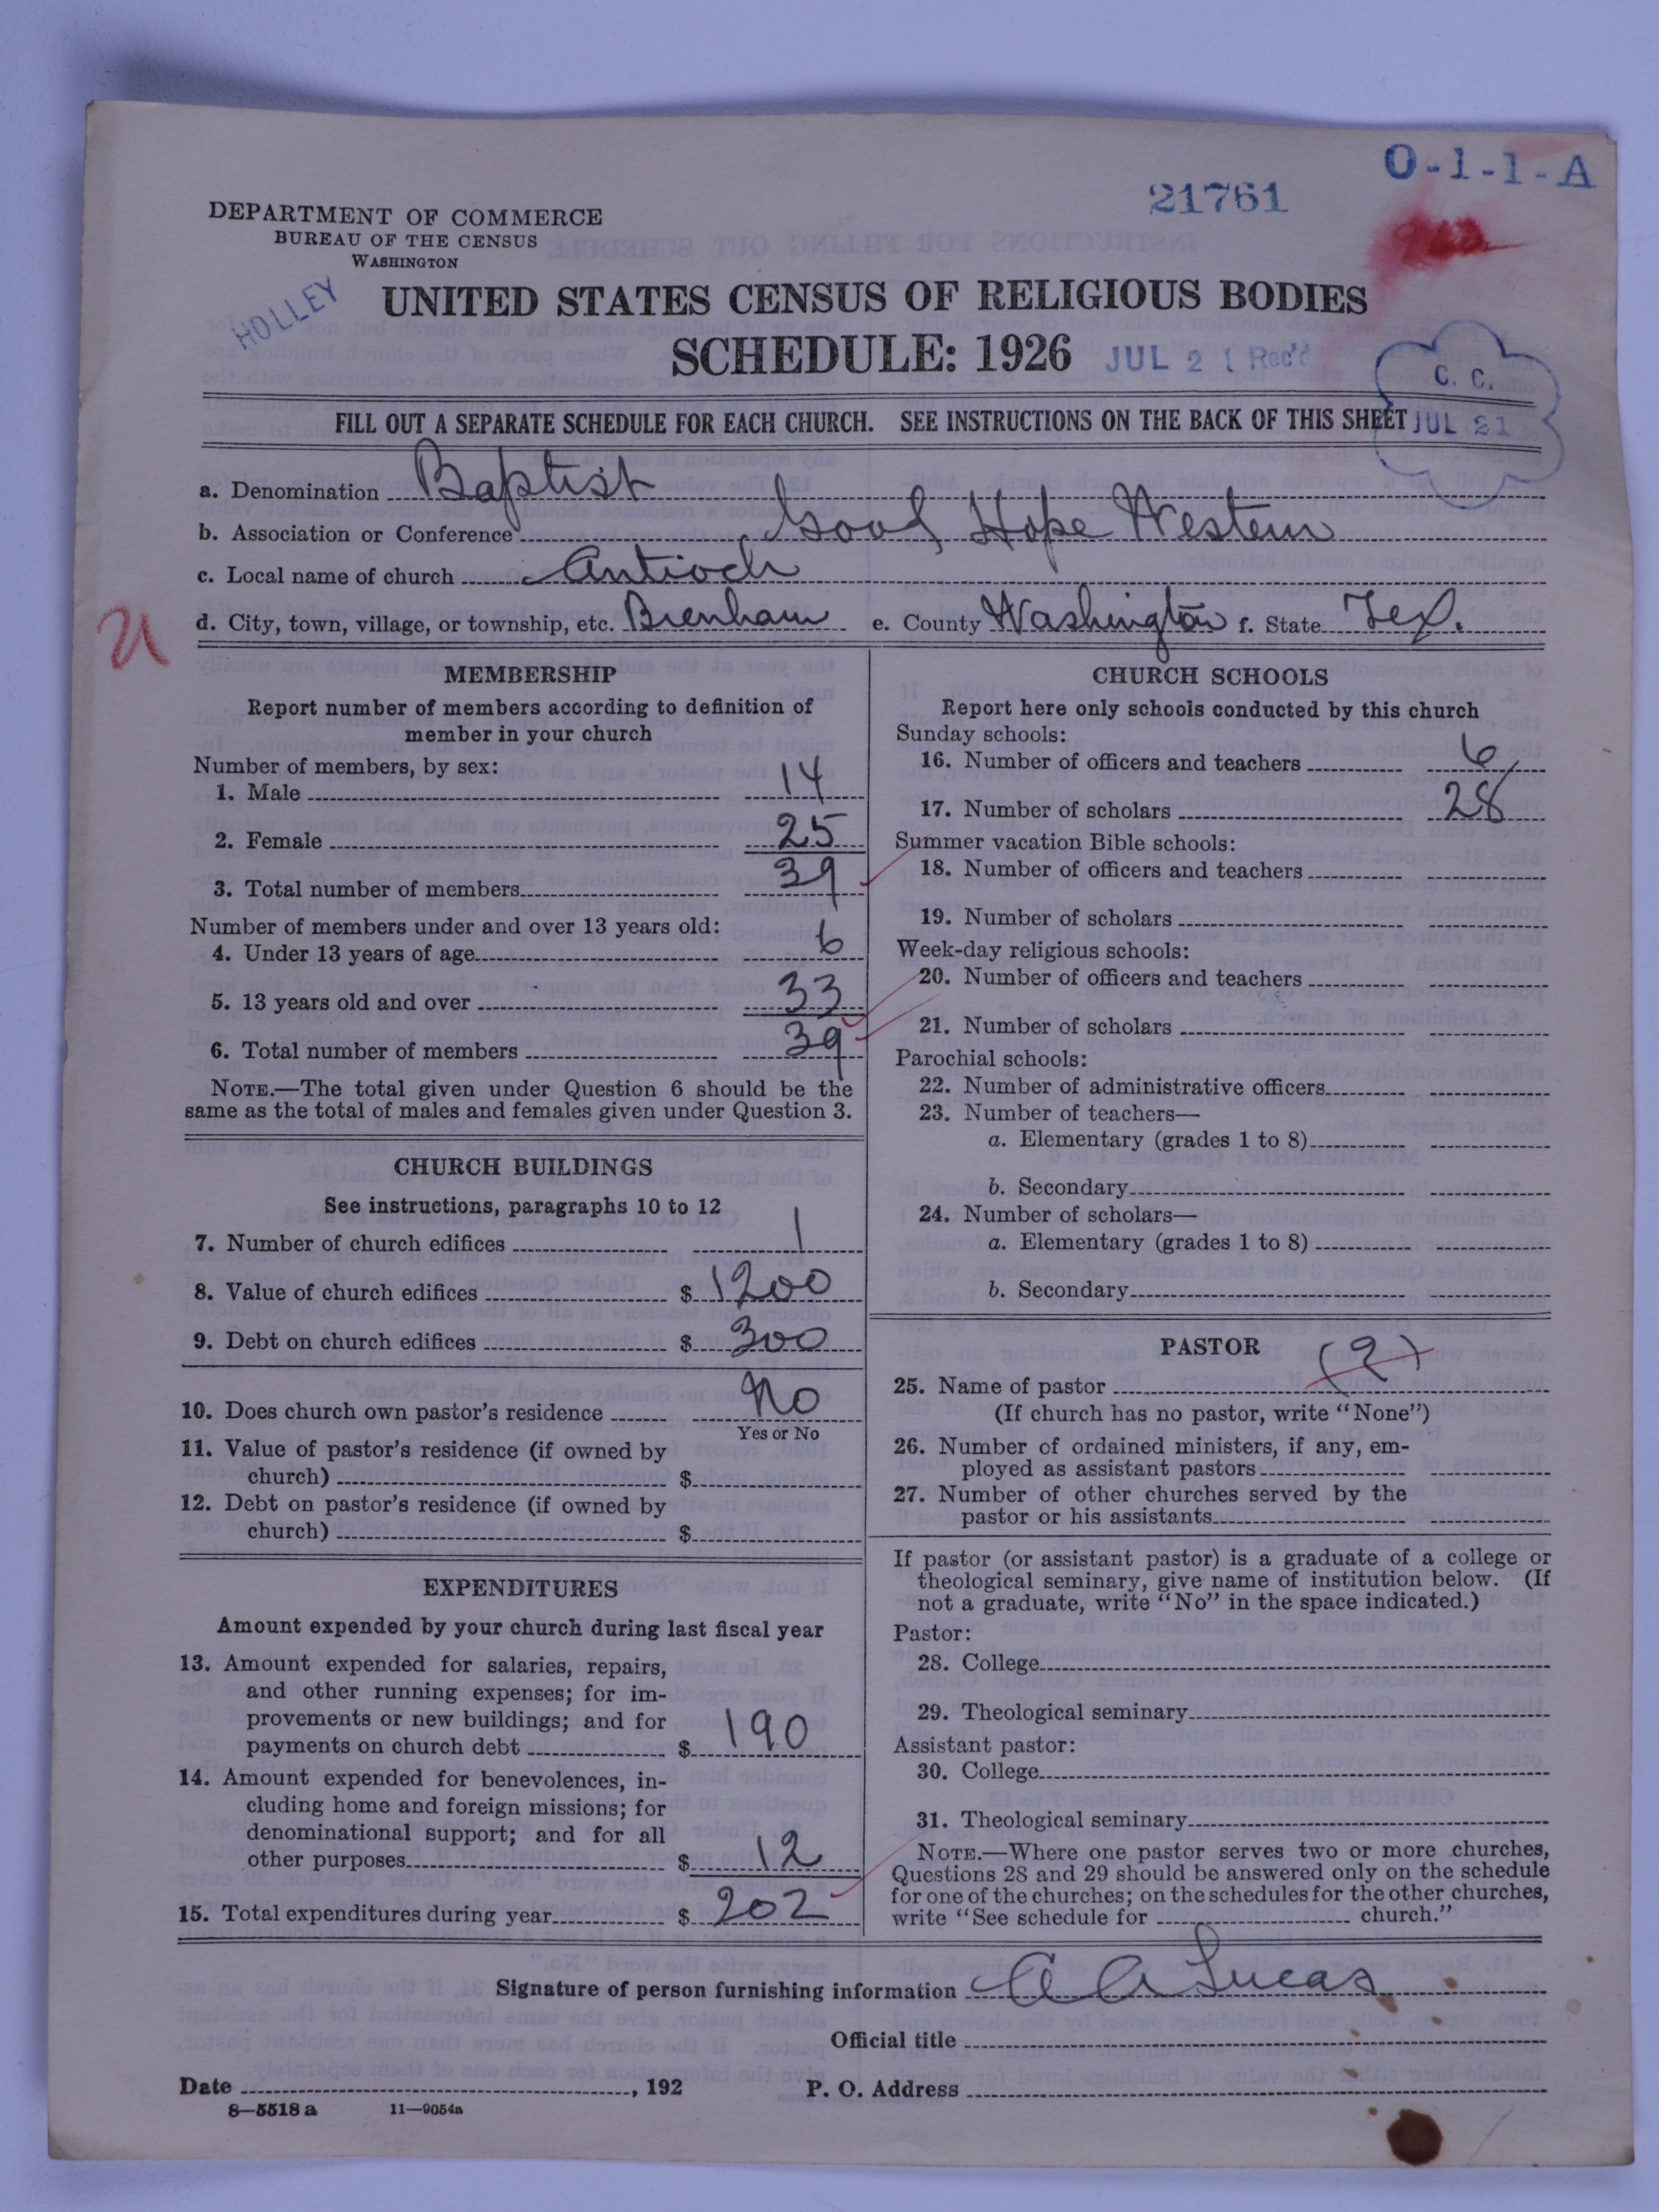 O-1-1-A
21761
DEPARTMENT OF COMMERCE
BUREAU OF THE CENSUS
WASHINGTON
HOLLEY
UNITED STATES CENSUS OF RELIGIOUS BODIES
SCHEDULE: 1926
JUL 21 Rec'd
C. C.
JUL 21
FILL OUT A SEPARATE SCHEDULE FOR EACH CHURCH. SEE INSTRUCTIONS ON THE BACK OF THIS SHEET
a. Denomination Baptist
b. Association or Conference Good Hope Western
c. Local name of church Antioch
d. City, town, village, or township, etc. Brenham e. County Washington f. State Tex.
MEMBERSHIP
Report number of members according to definition of
member in your church
Number of members, by sex:
1. Male 14
2. Female 25
3. Total number of members 39
Number of members under and over 13 years old:
4. Under 13 years of age 6
5. 13 years old and over 33
6. Total number of members 39
NOTE.—The total given under Question 6 should be the
same as the total of males and females given under Question 3.
CHURCH BUILDINGS
See instructions, paragraphs 10 to 12
7. Number of church edifices 1
8. Value of church edifices $ 1200
9. Debt on church edifices $ 300
10. Does church own pastor's residence No
Yes or No
11. Value of pastor's residence (if owned by
church) $
12. Debt on pastor's residence (if owned by
church) $
EXPENDITURES
Amount expended by your church during last fiscal year
13. Amount expended for salaries, repairs,
and other running expenses; for im-
provements or new buildings; and for
payments on church debt $ 190
14. Amount expended for benevolences, in-
cluding home and foreign missions; for
denominational support; and for all
other purposes $ 12
15. Total expenditures during year $ 202
CHURCH SCHOOLS
Report here only schools conducted by this church
Sunday schools:
16. Number of officers and teachers 6
17. Number of scholars 28
Summer vacation Bible schools:
18. Number of officers and teachers
19. Number of scholars
Week-day religious schools:
20. Number of officers and teachers
21. Number of scholars
Parochial schools:
22. Number of administrative officers
23. Number of teachers—
a. Elementary (grades 1 to 8)
b. Secondary
24. Number of scholars—
a. Elementary (grades 1 to 8)
b. Secondary
PASTOR (?)
25. Name of pastor
(If church has no pastor, write "None")
26. Number of ordained ministers, if any, em-
ployed as assistant pastors
27. Number of other churches served by the
pastor or his assistants
If pastor (or assistant pastor) is a graduate of a college or
theological seminary, give name of institution below. (If
not a graduate, write "No" in the space indicated.)
Pastor:
28. College
29. Theological seminary
Assistant pastor:
30. College
31. Theological seminary
NOTE.—Where one pastor serves two or more churches,
Questions 28 and 29 should be answered only on the schedule
for one of the churches; on the schedules for the other churches,
write "See schedule for church."
Signature of person furnishing information A A Lucas
Official title
Date , 192 P. O. Address
8—5518 a 11—9054a